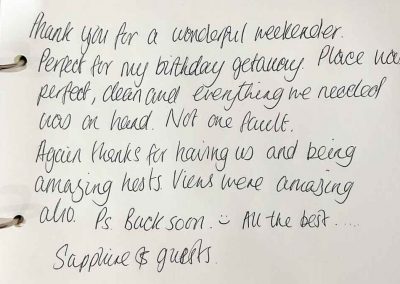 Thank you for a wonderful weekender.
Perfect for my birthday getaway. Place was
perfect, clean and everything we needed
was on hand. Not one fault.
Again thanks for having us and being
amazing hosts. Views were amazing
also. Ps. Back soon. :) All the best....
Sapphire & guests.